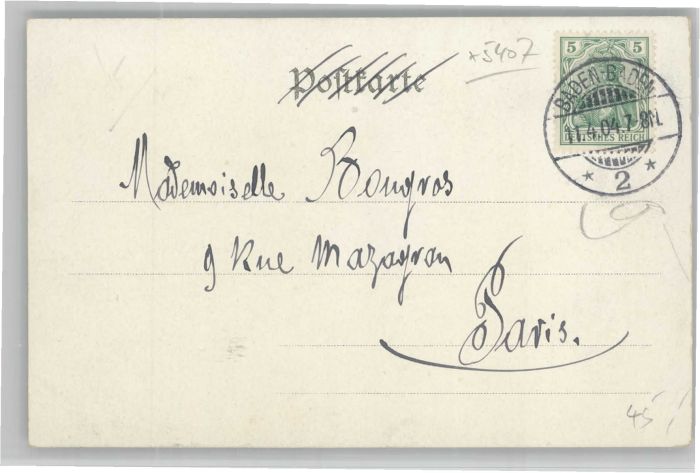 *5407
Postkarte
5 5
BADEN-BADEN
11.4.04.7-8N.
DEUTSCHES REICH
* 2 *
Mademoiselle Bongros
9 Rue Mazagran
Paris.
45